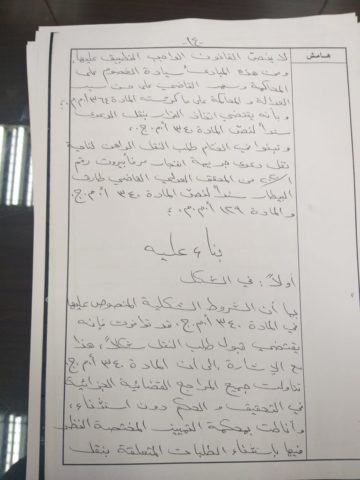 - ١٤ -
هامش
لا ينصّ القانون الواجب التطبيق عليها،
ومن هذه المبادئ سيادة الخصوم على
المحاكمة وسهر القاضي على حسن سير
العدالة والمحاكمة على ما كرّسته المادة ٣٦٤ أ.م.م.،
وبأنه يقتضي اتخاذ القرار بنقل الدعوى
سنداً لنصّ المادة ٣٤٠ أ.م.ج.،
في الختام طلب النقل الراهن لناحية
نقل دعوى جريمة انفجار مرفأ بيروت رقم
من المحقق العدلي القاضي طارق
البيطار سنداً لنصّ المادة ٣٤٠ أ.م.ج.
والمادة ١٢٩ أ.م.م.؛
بناءً عليه
أولاً: في الشكل
بما أن الشروط الشكلية المنصوص عليها
في المادة ٣٤٠ أ.م.ج. قد توافرت فإنه
يقتضي قبول طلب النقل شكلاً، هذا
مع الإشارة إلى أن المادة ٣٤٠ أ.م.ج.
تناولت جميع المراجع القضائية الجزائية
في التحقيق والحكم دون استثناء،
وأناطت بمحكمة التمييز المختصة النظر
فيها باستثناء الطلبات المتعلقة بنقل